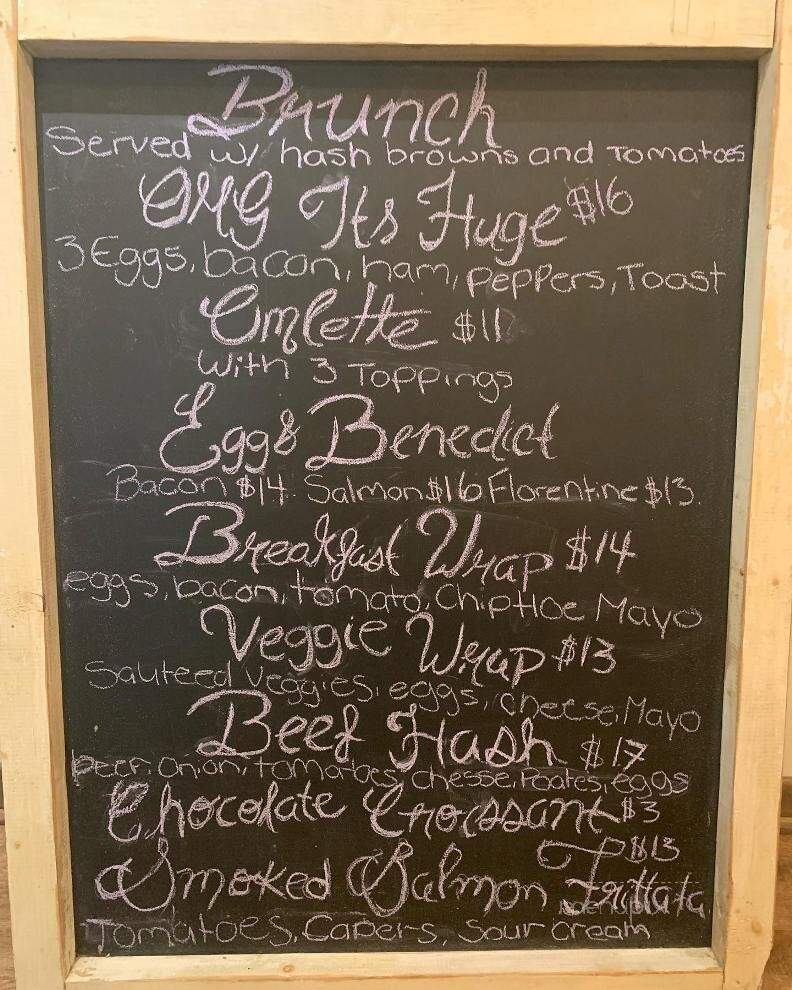 Brunch
Served w/ hash browns and Tomatoes
OMG Its Huge $16
3 Eggs, bacon, ham, peppers, Toast
Omlette $11
With 3 Toppings
Eggs Benedict
Bacon $14 Salmon $16 Florentine $13
Breakfast Wrap $14
eggs, bacon, tomato, Chiptloe Mayo
Veggie Wrap $13
Sauteed veggies, eggs, cheese, Mayo
Beef Hash $17
Beef, onion, tomatoes, chesse, Poates, eggs
Chocolate Croissant $3
Smoked Salmon Frittata $13
Tomatoes, Capers, Sour cream